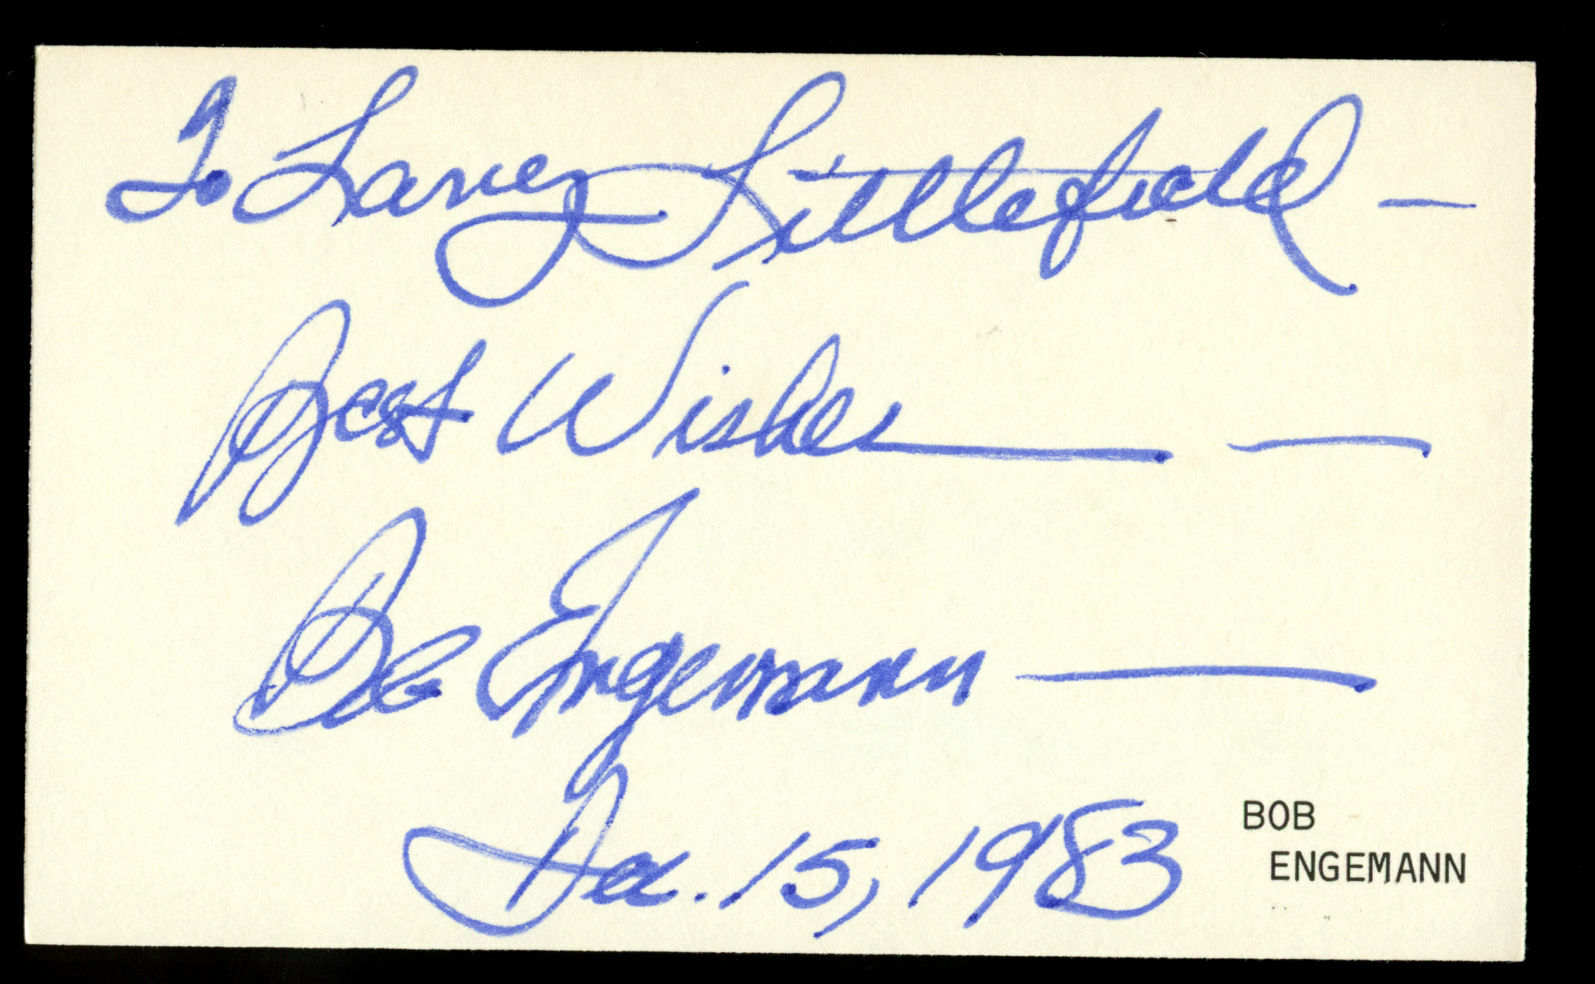 To Larry Littlefield —
Best Wishes —
Bob Engemann —
Dec. 15, 1983
BOB
ENGEMANN